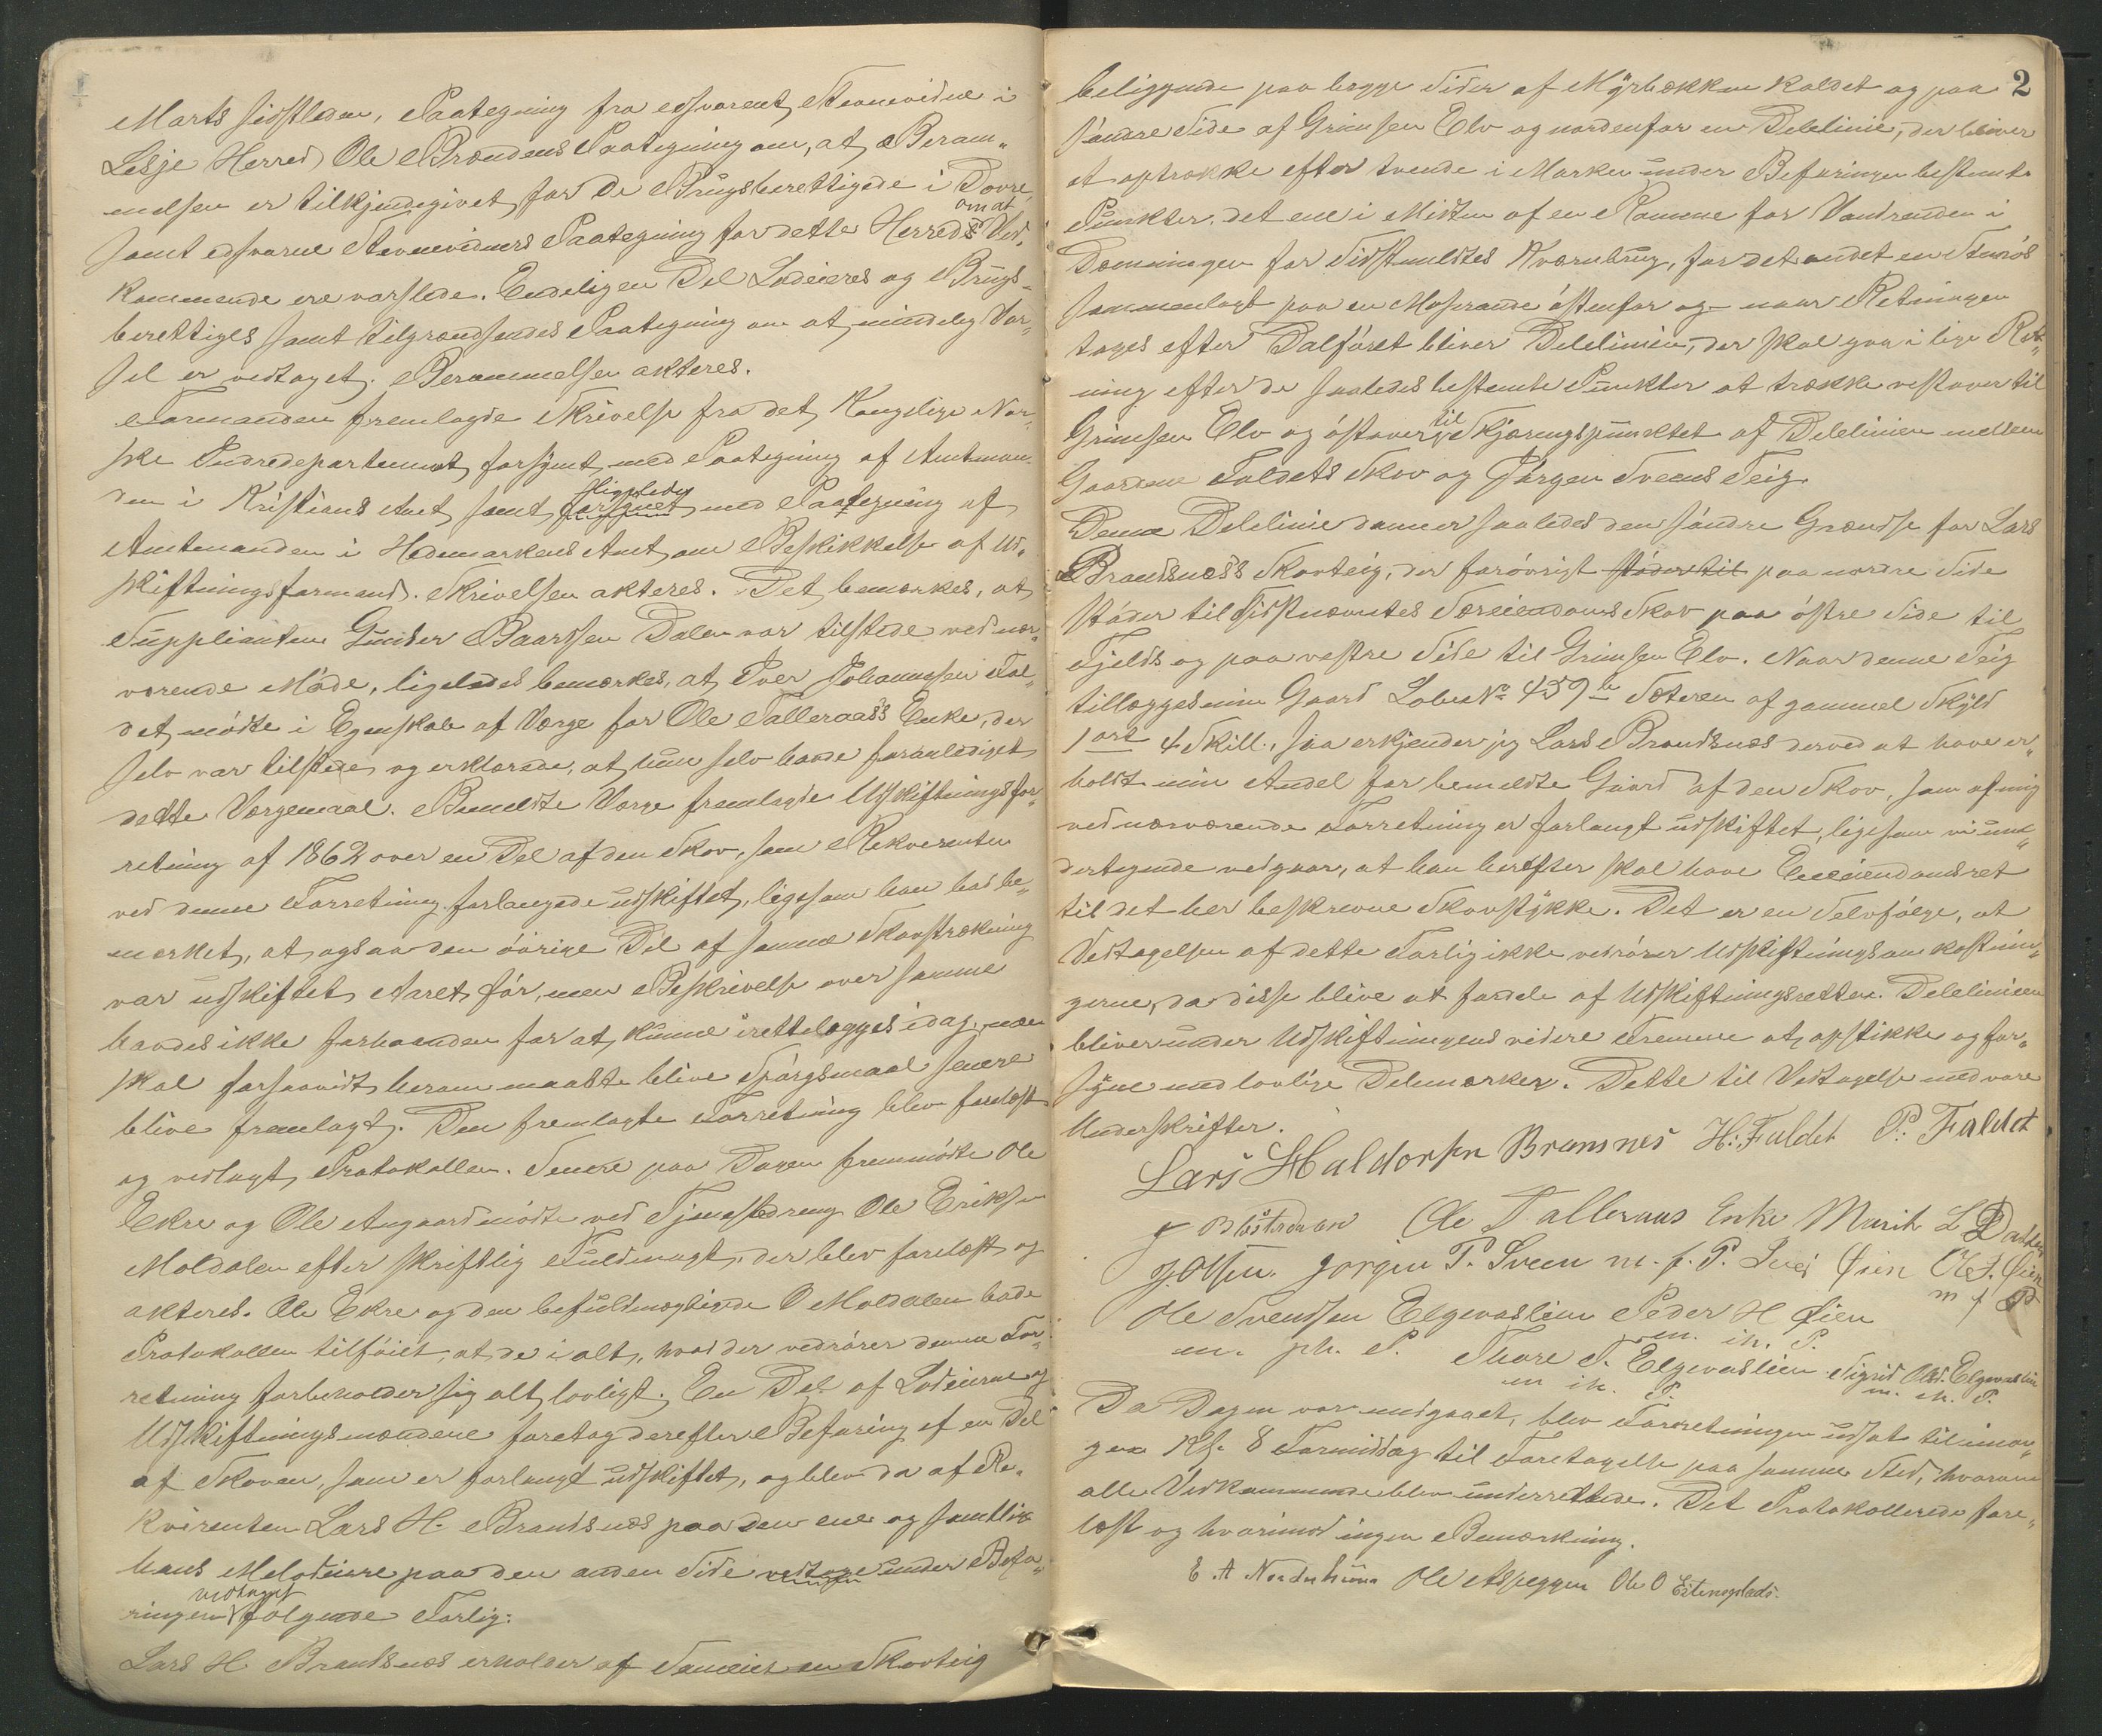 Marts sidstleden, Paategning fra edsvorent Stevnevidne i
Lesje Herred Ole Brændens Paategning om, at Beram„
melsen er tilkjendegivet for de Brugsberettigede i Dovre,
om at
samt edsvorne Stevnevidners Paategning for dette Herreds Ved„
kommende ere varslede. Endeligen Del Lodeieres og Brugs„
berettiges samt tilgrændsendes Paategning om at mindelig Var„
sel er vedtaget. Berammelsen akteres.
Formanden fremlagde Skrivelse fra det Kongelige Nor„
ske Indredepartement forsynt med Paategning af Amtman„
ligeledes
den i Kristians Amt samt forsynet med Paategning af
Amtmanden i Hedemarkens Amt om Beskikkelse af Ud„
skiftningsformand. Skrivelsen akteres. Det bemærkes, at
Supplianten Gunder Baardsen Dalen var tilstede ved nær„
værende Møde, ligeledes bemærkes, at Iver Johannesen Fal„
det mødte i Egenskab af Værge for Ole Talleraass Enke, der
selv var tilstede og erklærede, at hun selv havde foranlediget
dette Værgemaal. Bemeldte Værge fremlagde Udskiftningsfor„
retning af 1862 over en Del af den Skov, som Rekvirenten
ved denne Forretning forlangede udskiftet, ligesom han bad be„
mærket, at ogsaa den øvrige Del af samme Skovstrækning
var udskiftet Aaret før, men Beskrivelse over samme
havdes ikke forhaanden for at kunne irettelægges idag, men
skal forsaavidt herom maatte blive Spørgsmaal senere
blive fremlagt. Den fremlagte Forretning blev forelæst
og vedlagt Protokollen. Senere paa Dagen fremmødte Ole
Ekre og Ole Angaard mødte ved Tjenestedreng Ole Eriksen
Moldalen efter skriftlig Fuldmagt, der blev forelæst og
akteres. Ole Ekre og den befuldmægtigede O Moldalen bade
Protokollen tilføiet, at de i alt, hvad der vedrører denne For„
retning forbeholder sig alt lovligt. En Del af Lodeierne og
Udskiftningsmændene foretog derefter Befaring af en Del
af Skoven, som er forlangt udskiftet, og blev da af Re„
kvirenten Lars H. Brandsnes paa den ene og samtlige
hans Melodeiere paa den anden Side vedtage under Befa„
vedtaget
ringen følgende Forlig:
Lars H Brandsnes erholder af Sameiet en Skovteig
2
beliggende paa begge Sider af Myrbækken kaldet og paa
søndre Side af Grimsen Elv og nordenfor en Delelinie, der bliver
at optrække efter tvende i Marken under Befaringen bestemte
Punkter, det ene i Midten af en Ramme for Vandrenden i
Dæmningen for Sidstmeldtes Kværnbrug, for det andet en Stenrøs
sammenlagt paa en Mosrande østenfor og naar Retningen
tages efter Dalføret bliver Delelinien, der skal gaa i lige Ret„
ning efter de saaledes bestemte Punkter at trække vestover til
til
Grimsen Elv og østover Skjæringspunktet af Delelinien mellem
Gaardene Faldets Skov og Jørgen Sveens Teig.
Denne Delelinie danner saaledes den søndre Grændse for Lars
Brandsness Skovteig, der forøvrigt støder til paa nordre Side
støder til Sidstnævntes Særeiendoms Skov paa østre Side til
Fjelds og paa vestre Side til Grimsen Elv. Naar denne Teig
tillægges min Gaard Løbe No 459 b Sæteren af gammel Skyld
1 ort 4 Skill., saa erkjender jeg Lars Brandsnes derved at have er„
holdt min Andel for bemeldte Gaard af den Skov, som af mig
ved nærværende Forretning er forlangt udskiftet, ligesom vi und„
dertegnede vedgaar, at han herefter skal have Eneeiendomsret
til det her beskrevne Skovstykke. Det er en Selvfølge, at
Vedtagelsen af dette Forlig ikke vedrører Udskiftningsomkostnin„
gerne, da disse blive at fordele af Udskiftningsretten. Delelinien
bliver under Udskiftningens videre Fremme at opstikke og for„
syne med lovlige Delemærker. Dette til Vedtagelse med vore
Underskrifter.
Lars Haldorsen Bransnes H: Faldet P: Faldet
Ole Talleraas Enke Marit L Datter
J Olsen. Jørgen P. Sveen m. f. P. Øien Ole J. Øien
m f P
Ole Svendsen Elgevaslien Peder H Øien
m. ph. P. m. ih. P.
Thore S. Elgevaslien Sigrid Olsd. Elgevaslien
m ih. P. m. ih. P.
Da Dagen var medgaaet, blev Forretningen udsat til imor„
gen Kl. 8 Formiddag til Foretagelse paa samme Sted, hvorom
alle Vedkommende blev underrettede. Det Protokollerede fore„
læst og hvorimod ingen Bemærkning.
E. A Nordshuus Ole Aspeggen Ole O Estensplads.